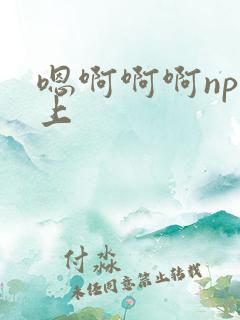 嗯啊啊啊np
上
付淼
未经同意禁止转载